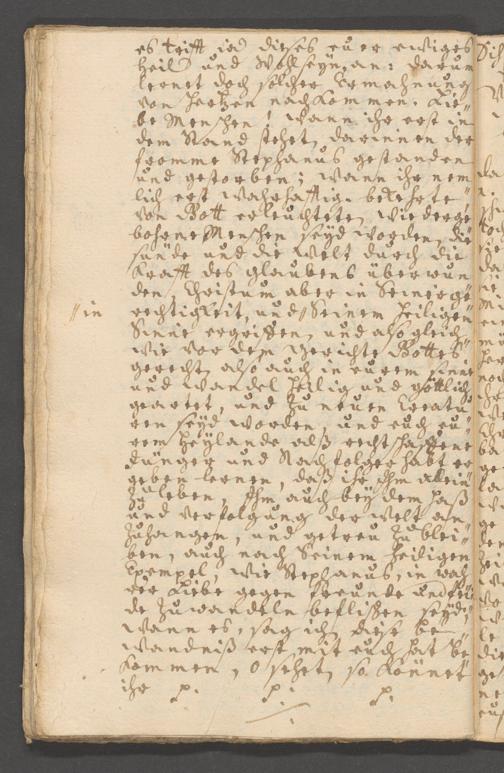 es trifft ja dieses euer ewiges
Heil und Wohlseyn an: darum
lernet doch solcher Ermahnung
von Hertzen nachkommen. Lie-
be Menschen! wann ihr erst in
dem Stand stehet, darinnen der
fromme Stephanus gestanden
und gestorben; wann ihr nem
lich erst wahrhafftig bekehrte
von Gott erleuchtete, wiederge
bohrne Menschen seyd worden, die
Sünde und die Welt durch die
Krafft des Glaubens überwun
den, Christum aber in Seiner ge
rechtigkeit, und // Seinem heiligen
// in
Sinn ergriffen, und also gleich
wie vor dem Gerichte Gottes
gerecht, also auch in eurem sinn
und Wandel heilig und göttlich
geartet, und zu neuen Creatu
ren seyd worden, und euch eu-
rem Heylande alß rechtschaffene
Jünger und Nachfolger habt er
geben lernen, daß ihr Ihm allein
zu leben, Ihm auch bey dem Haß
und Verfolgung der Welt an-
zuhangen, und getreu zu blei-
ben, auch nach Seinem heiligen
Exempel, wie Stephanus, in wah
rer Liebe gegen freunde und fein
de zu wandeln beflißen seyd;
wann es, sag ich, diese be-
wandniß erst mit euch hat be
kommen, o sehet, so könnet
ihr p. p. p.